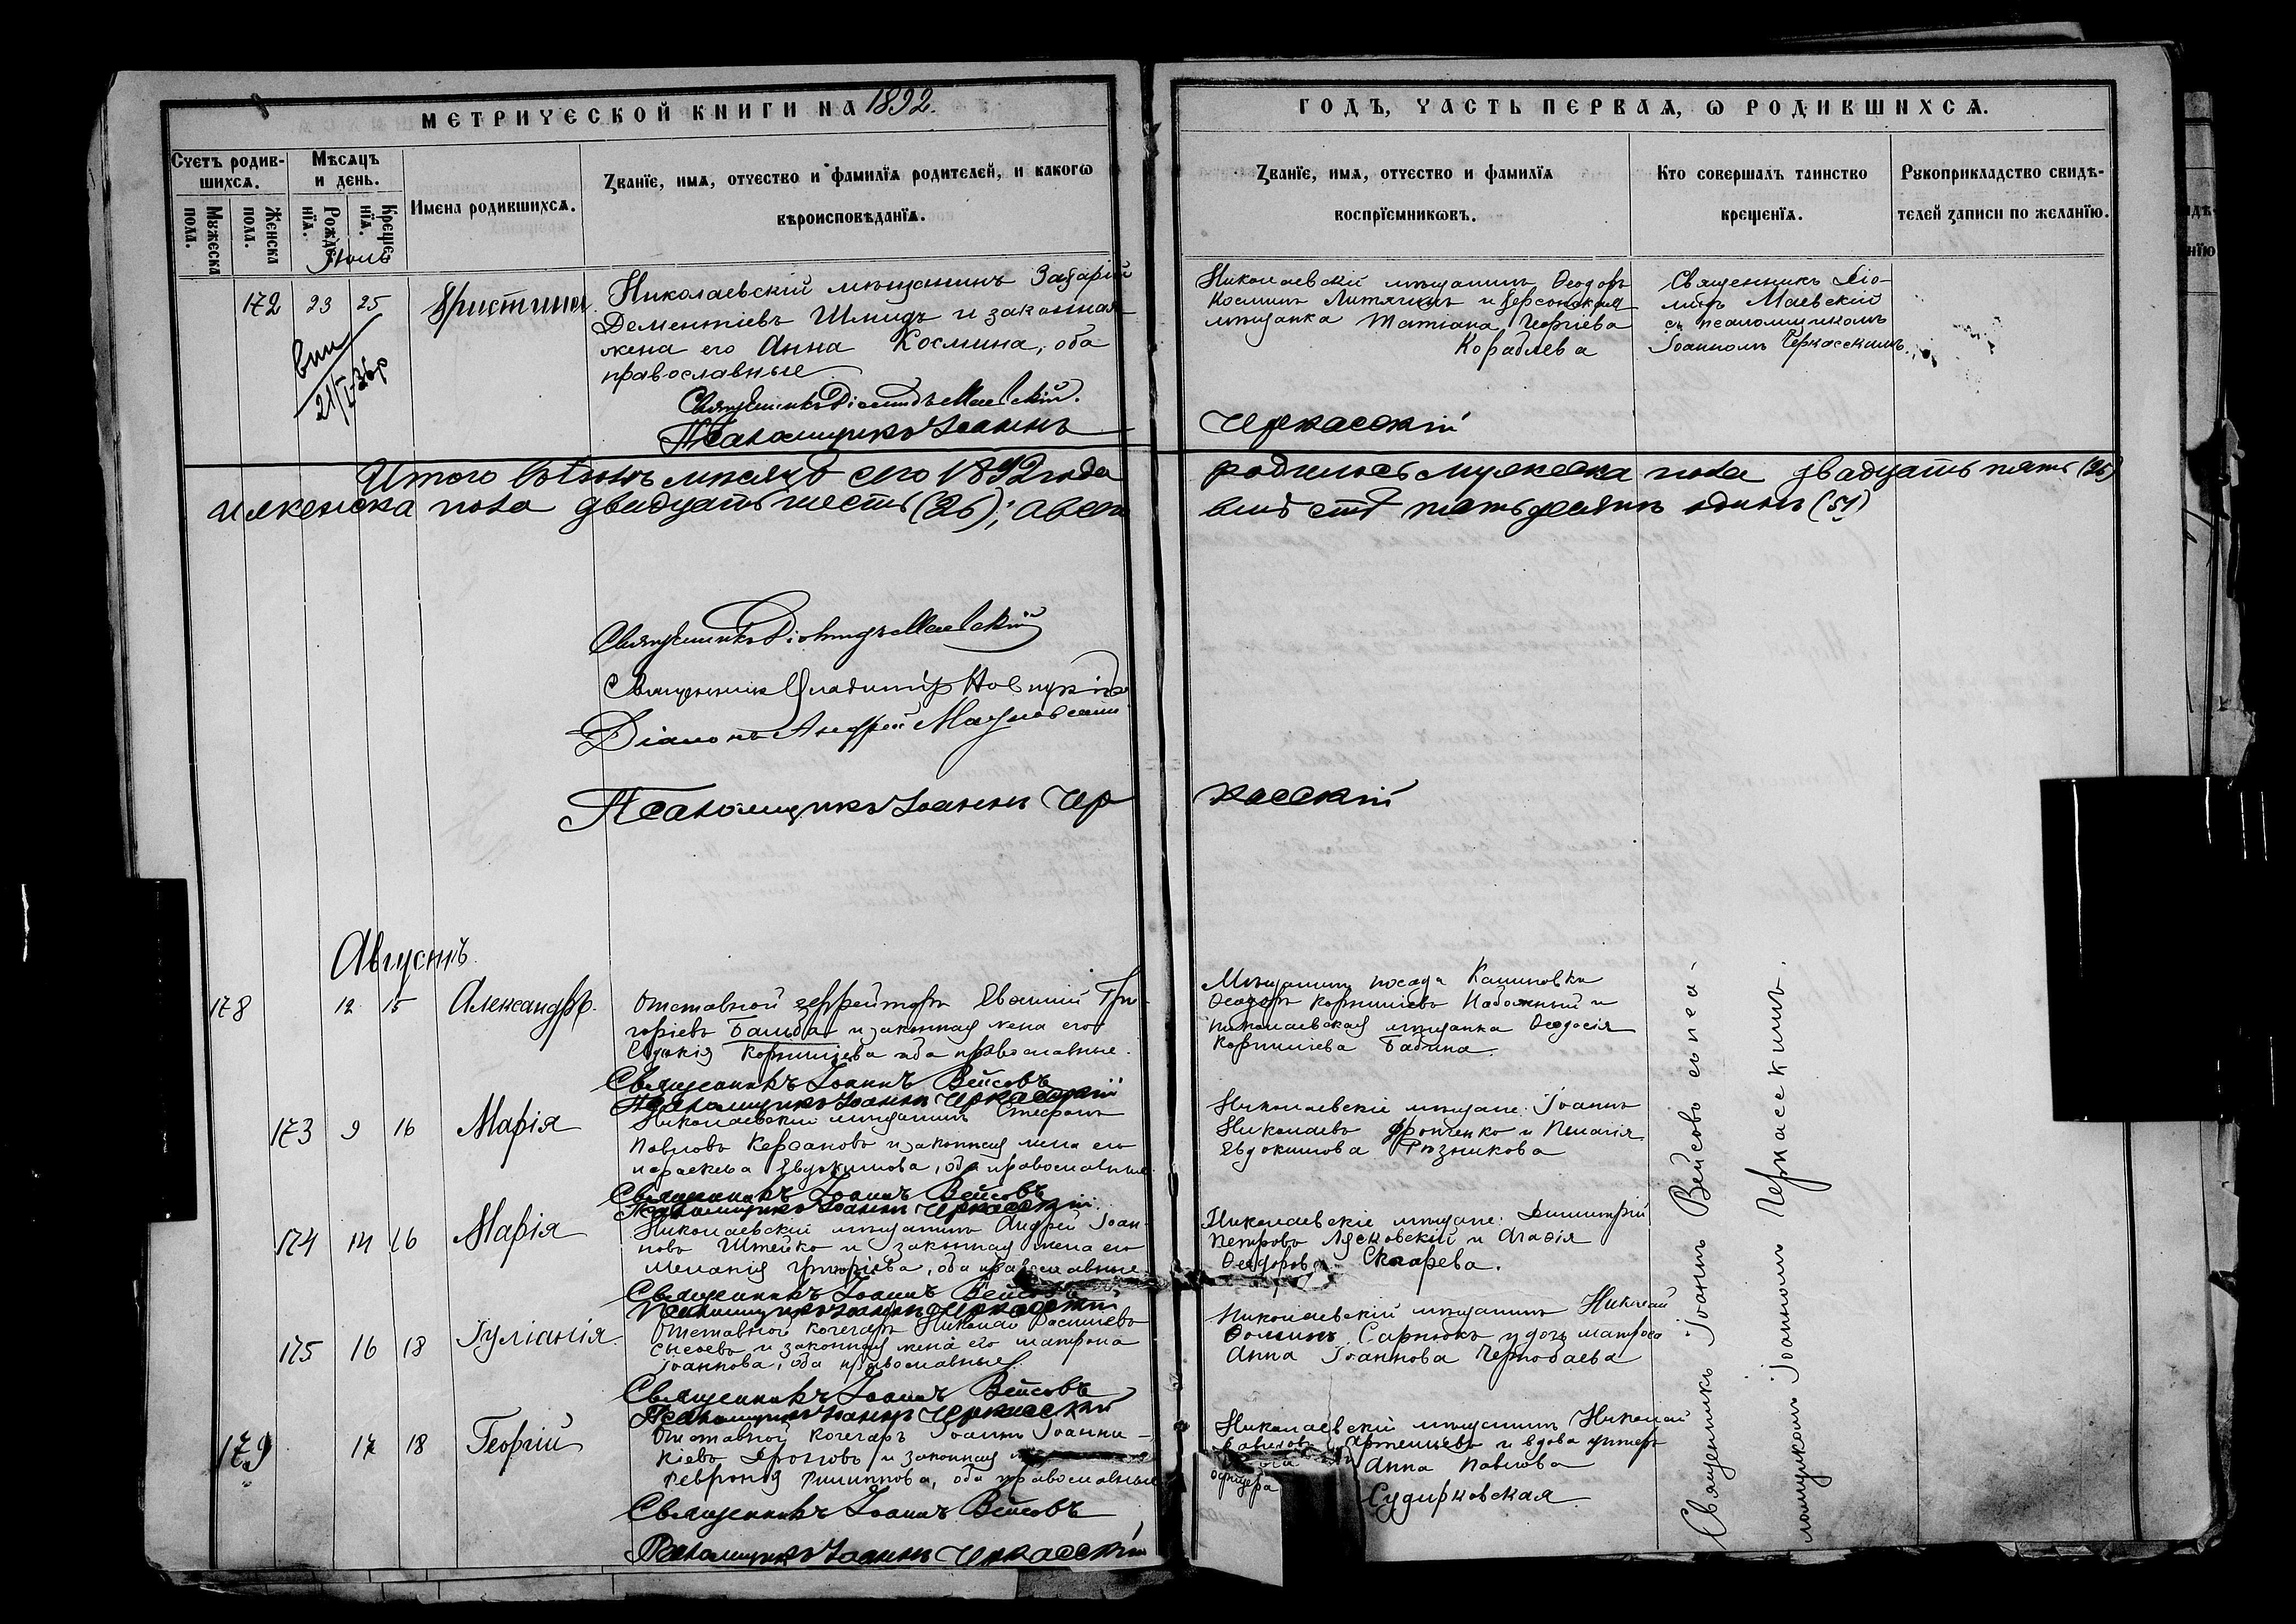 МЕТРИЧЕСКОЙ КНИГИ НА 1892.
Счетъ родив-
шихся.
Мужеска
пола.
Женска
пола.
Мѣсяцъ
и день.
Рождѣ-
нїя.
Крещє-
нїя.
Имена родившихся.
Званїе, имя, отчество и фамилїя родителей, и какогѡ
вѣроисповѣданїя.
ГОДЪ, ЧАСТЬ ПЕРВАЯ, Ѡ РОДИВШИХСЯ.
Званїе, имя, отчество и фамилїя
воспрїемникѡвъ.
Кто совершалъ таинство
крещенїя.
Рукоприкладство свидѣ-
телей записи по желанїю.
Іюль
172 23 25 Христина
21/I-36р
Николаевскій мѣщанинъ Захарій
Дементіевъ Шмидъ и законная
жена его Анна Космина, оба
православные
Священникъ Діомидъ Маевскій.
Псаломщикъ Іоаннъ
Николаевскій мѣщанинъ Ѳеодоръ
Косминъ Литягинъ и Херсонская
мѣщанка Татіана Георгіева
Кораблева
Черкасскій
Священникъ Діо-
мидъ Маевскій
съ псаломщикомъ
Іоанномъ Черкасскимъ.
Итого въ Іюлѣ мѣсяцѣ сего 1892 года
родилось мужеска пола двадцать пять (25)
и женска пола двадцать шесть (26); а всего
вмѣстѣ пятьдесятъ одинъ (51)
Священникъ Діомидъ Маевскій
Священникъ Владимиръ Новицкій
Діаконъ Андрей
Псаломщикъ Іоаннъ Чер
касскій
Августъ.
178 12 15 Александръ.
Отставной ефрейторъ Евѳимій Гри-
горіевъ Бальба и законная жена его
Евдокія Корниліева оба православные.
Священникъ Іоаннъ Вейсовъ
Псаломщикъ Іоаннъ Черкасскій
Мѣщанинъ посада Калиновки
Ѳеодоръ Корниліевъ Набожный и
николаевская мѣщанка Ѳеодосія
Корниліева Бабина.
173 9 16 Марія
Николаевскій мѣщанинъ Стефанъ
Павловъ Керсановъ и законная жена его
Параскева Евдокимова, оба православные
Священникъ Іоаннъ Вейсовъ
Псаломщикъ Іоаннъ Черкасскій
Николаевскіе мѣщане: Іоаннъ
Николаевъ Фронченко и Пелагія
Евдокимова Рѣзникова
174 14 16 Марія
Николаевскій мѣщанинъ Андрей Іоан-
новъ Штейко и законная жена его
Меланія Григоріева, оба православные
Священникъ Іоаннъ Вейсовъ
Псаломщикъ Іоаннъ Черкасскій
Николаевскіе мѣщане: Димитрій
Петровъ Лясковскій и Агаѳія
Ѳеодорова Скларева.
175 16 18 Іуліанія
Отставной кочегаръ Николай Василіевъ
Сысоевъ и законная жена его Матрона
Іоаннова, оба православные.
Священникъ Іоаннъ Вейсовъ
Псаломщикъ Іоаннъ Черкасскій
Николаевскій мѣщанинъ Николай
Ѳоминъ Сарнюкъ и дочь матроса
Анна Іоаннова Чернобаева
179 17 18 Георгій
Отставной кочегаръ Іоаннъ Іоанни-
кіевъ и законная
Февронія Филиппова, оба православные
Священникъ Іоаннъ Вейсовъ
Псаломщикъ Іоаннъ Черкасскій
Николаевскій мѣщанинъ Николай
Артемьевъ и вдова унтеръ
офицера
Анна Павлова
Судирковская
Священникъ Іоаннъ Вейсовъ съ пса-
ломщикомъ Іоанномъ Черкасскимъ.